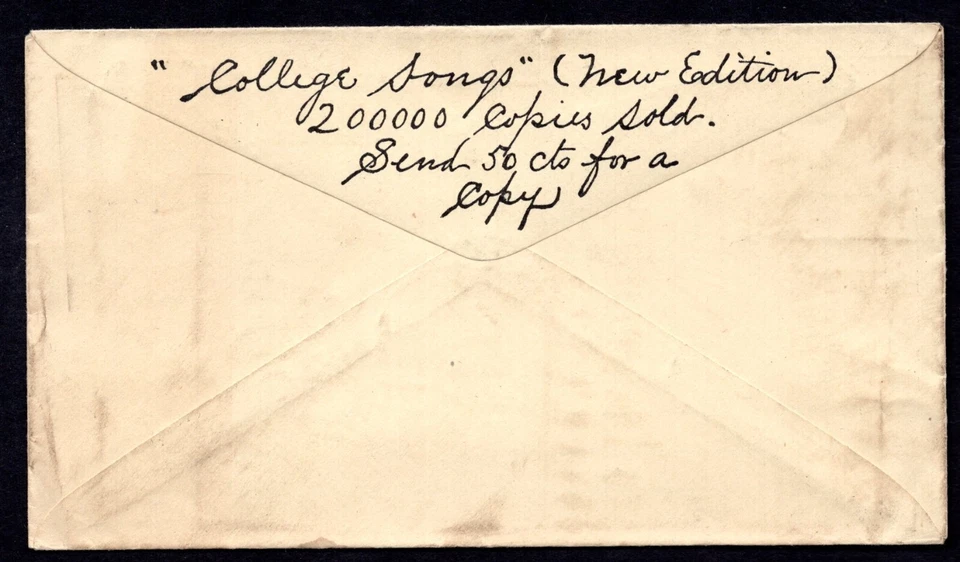 "College Songs" (New Edition)
200000 Copies Sold.
Send 50 cts for a
Copy